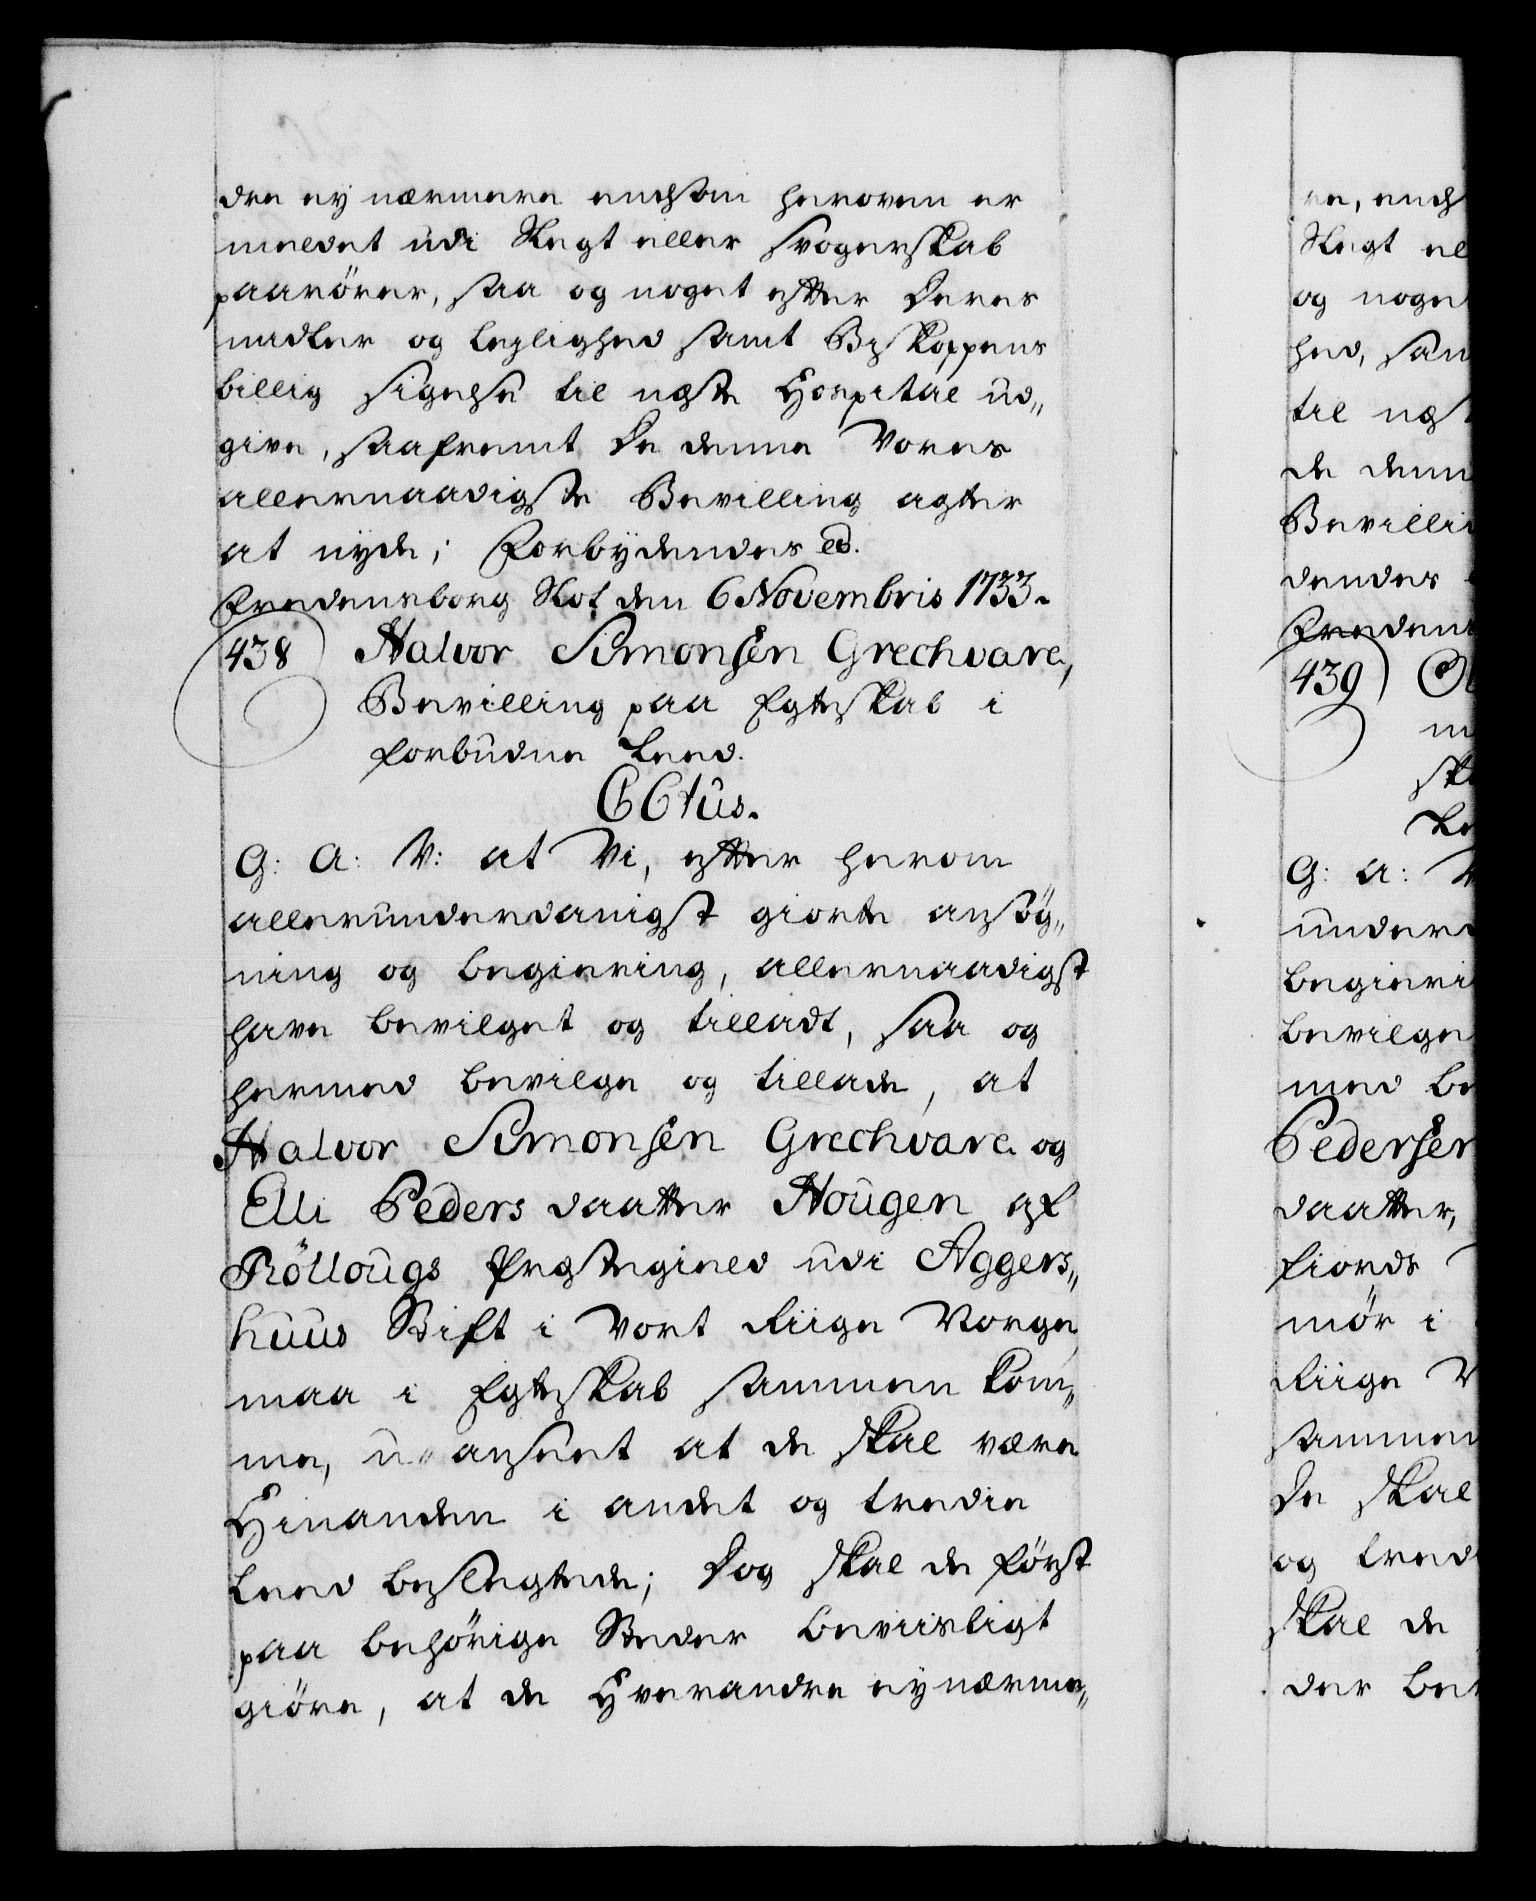 dre ey nærmere end som heroven er
meldet udi Slegt eller Svogerskab
paarörer, saa og noget efter deres
midler og leylighed samt Biskoppens
billig sigelse til neste Hospital ud„
give, saafremt de denne Vores
allernaadigste Bevilling agter
at nyde; Forbydendes &.
Fredensborg Slot den 6 Novembris 1733.
438 Halvor Simonsen Grechvare,
Bevilling paa Egteskab i
forbudne Leed.
C6tus.
G: A: V: at Vi, efter herom
allerunderdanigst giorte ansög„
ning og begiering, allernaadigst
have bevilget og tilladt, saa og
hermed bevilge og tillade, at
Halvor Simonsen Grechvare og
Elli Peders daatter Hougen af
Röllougs Prestegield udi Aggers„
huus Stift i Vort Riige Norge,
maa i Egteskab sammen kom„
me, uanseet at de skal være
Hinanden i andet og tredie
Leed beslegtede; Dog skal de först
paa behörige Steder beviisligt
giöre, at de Hverandre ey nærme„
re, end
Slegt el
og noge
hed, sam
til nest
de denn
Bevilli
dendes
Fredens
439 Ol
m
sk
Le
G: A: V
under
begieri
bevilge
med be
Pedersen
daatter,
fiords
mör i
Riige N
sammen
de skal
og tred
skal de
der bev